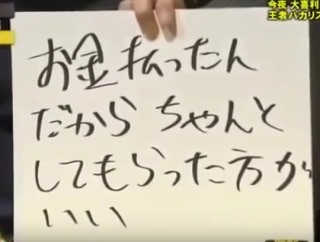 今夜 大喜利
王者バカリズ
お金払ったん
だから ちゃんと
してもらった方が
いい